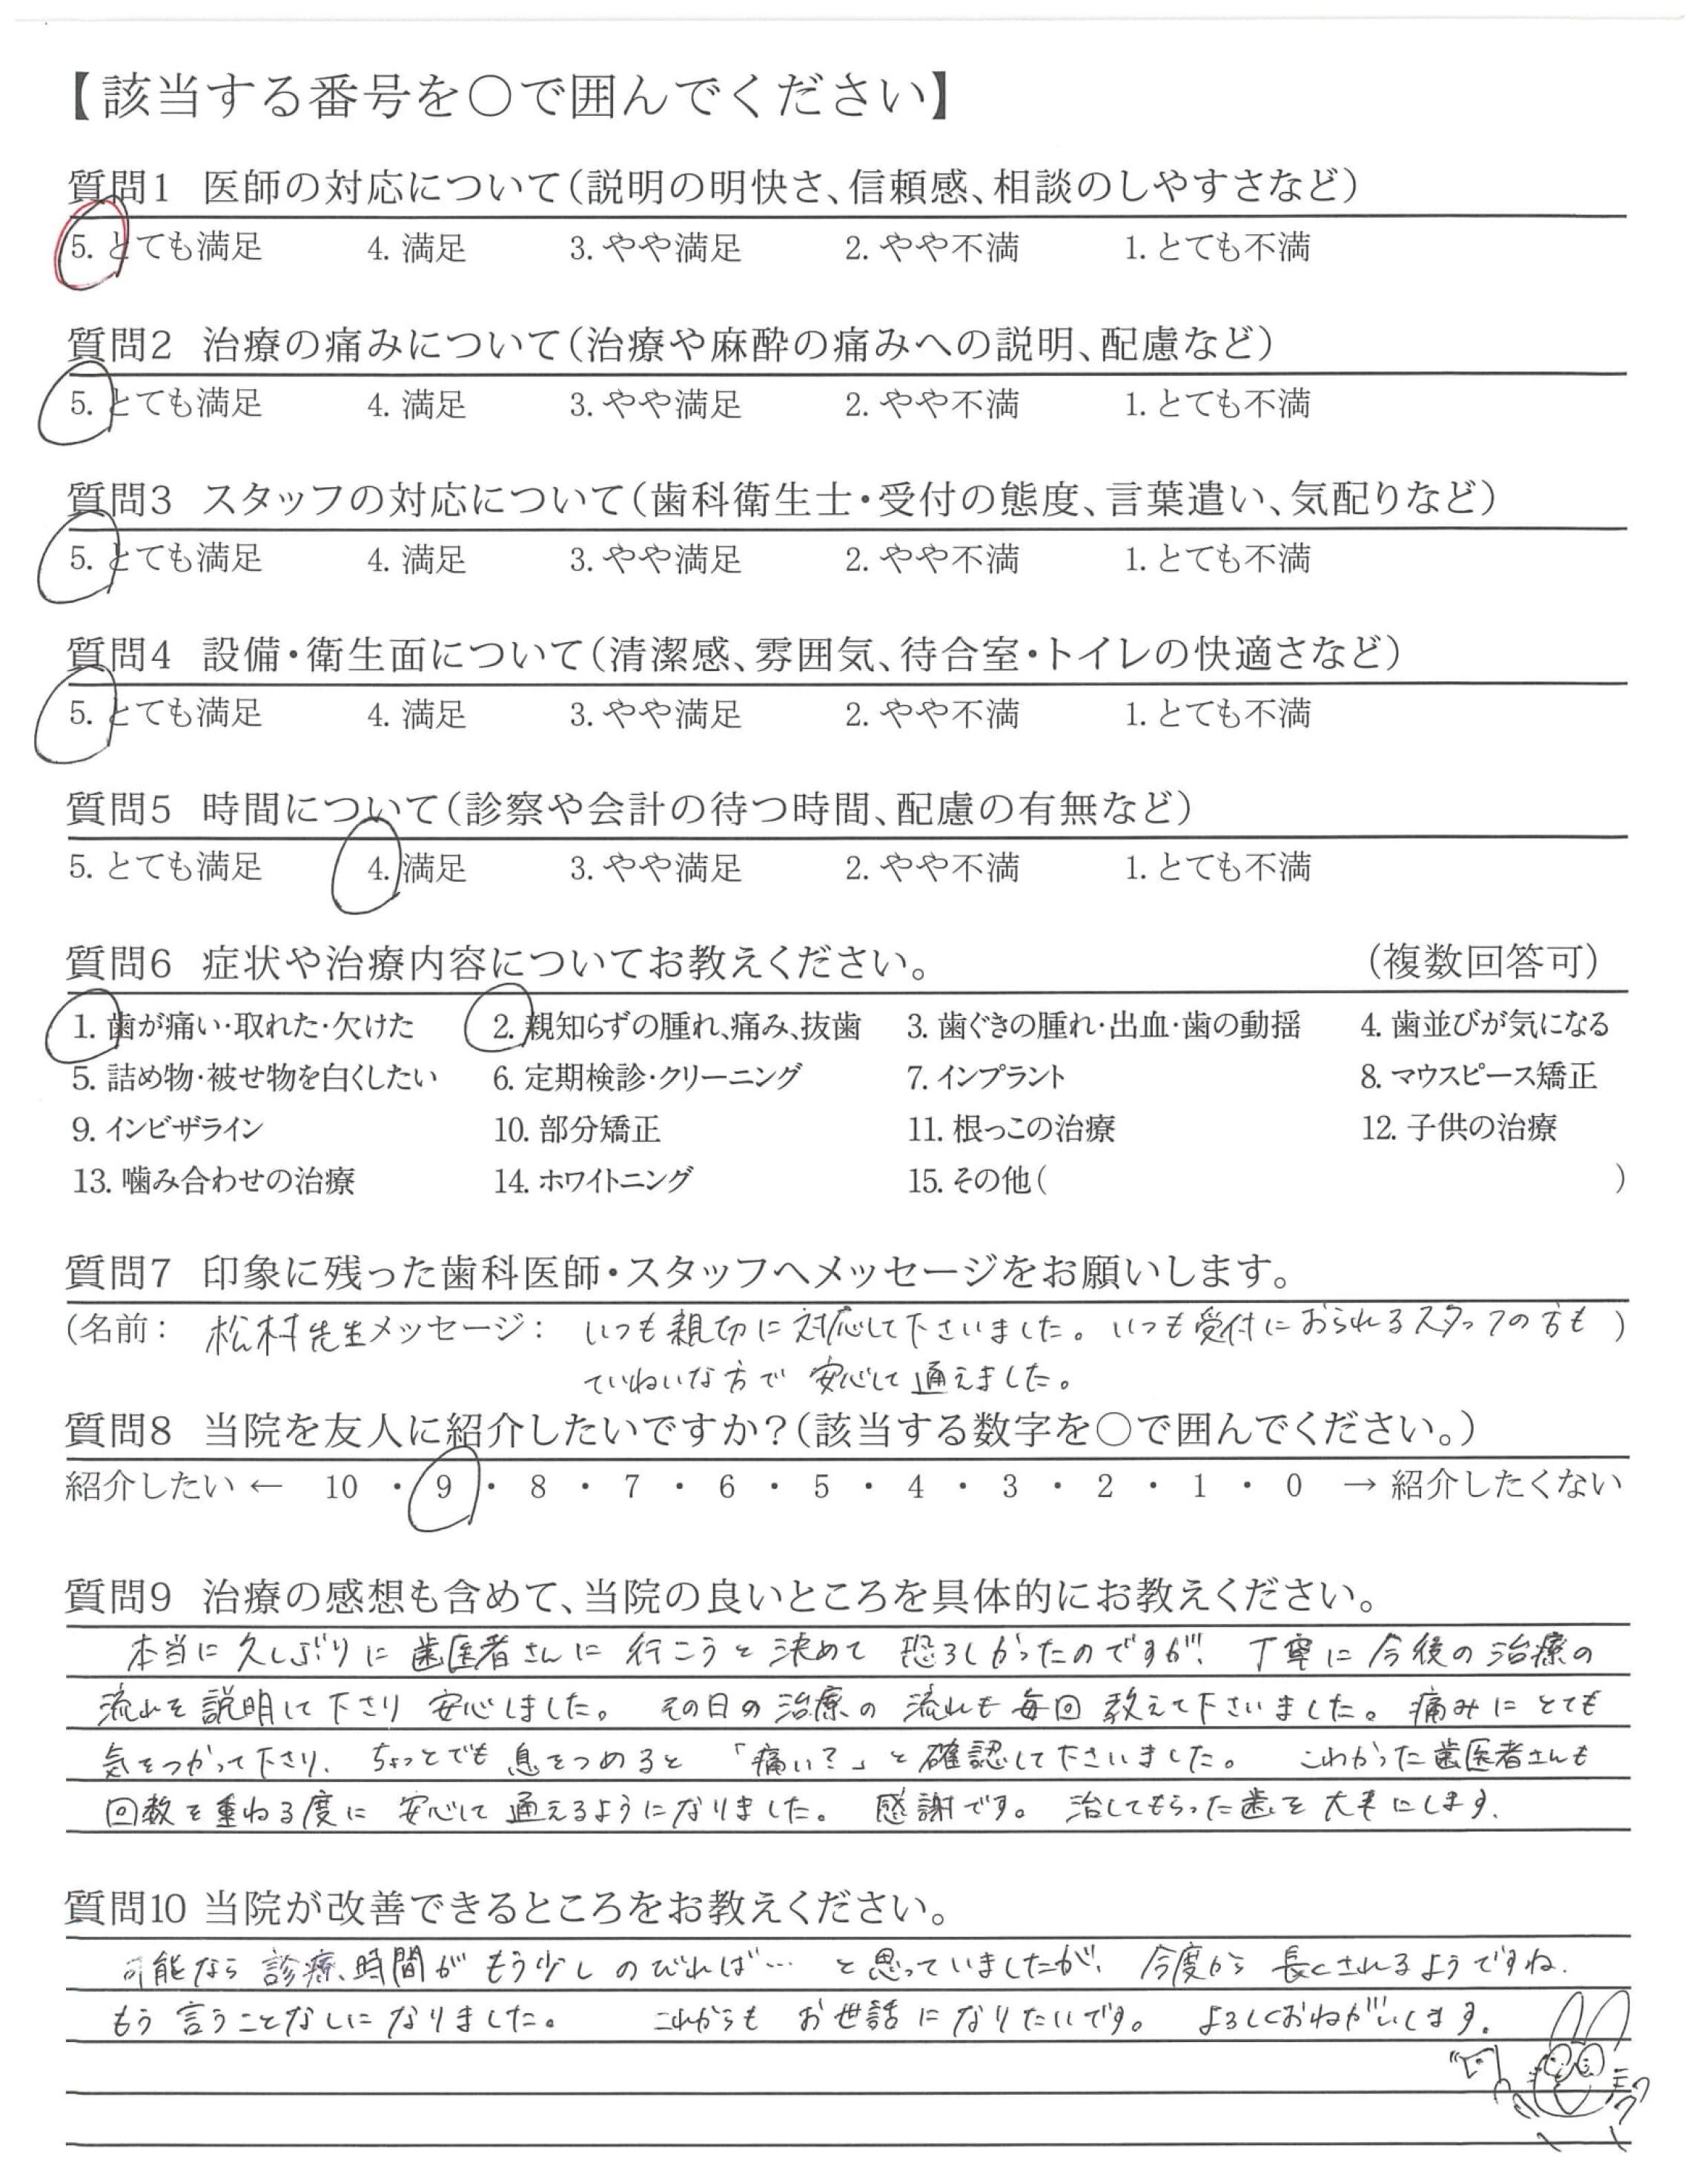 【該当する番号を○で囲んでください】
質問1 医師の対応について(説明の明快さ、信頼感、相談のしやすさなど)
5. とても満足 4. 満足 3. やや満足 2. やや不満 1. とても不満
質問2 治療の痛みについて(治療や麻酔の痛みへの説明、配慮など)
5. とても満足 4. 満足 3. やや満足 2. やや不満 1. とても不満
質問3 スタッフの対応について(歯科衛生士・受付の態度、言葉遣い、気配りなど)
5. とても満足 4. 満足 3. やや満足 2. やや不満 1. とても不満
質問4 設備・衛生面について(清潔感、雰囲気、待合室・トイレの快適さなど)
5. とても満足 4. 満足 3. やや満足 2. やや不満 1. とても不満
質問5 時間について(診察や会計の待つ時間、配慮の有無など)
5. とても満足 4. 満足 3. やや満足 2. やや不満 1. とても不満
質問6 症状や治療内容についてお教えください。 (複数回答可)
1. 歯が痛い・取れた・欠けた 2. 親知らずの腫れ、痛み、抜歯 3. 歯ぐきの腫れ・出血・歯の動揺 4. 歯並びが気になる
5. 詰め物・被せ物を白くしたい 6. 定期検診・クリーニング 7. インプラント 8. マウスピース矯正
9. インビザライン 10. 部分矯正 11. 根っこの治療 12. 子供の治療
13. 噛み合わせの治療 14. ホワイトニング 15. その他( )
質問7 印象に残った歯科医師・スタッフへメッセージをお願いします。
(名前: 松村先生 メッセージ: いつも親切に対応して下さいました。いつも受付におられるスタッフの方も )
ていねいな方で 安心して通えました。
質問8 当院を友人に紹介したいですか?(該当する数字を○で囲んでください。)
紹介したい ← 10 ・ 9 ・ 8 ・ 7 ・ 6 ・ 5 ・ 4 ・ 3 ・ 2 ・ 1 ・ 0 → 紹介したくない
質問9 治療の感想も含めて、当院の良いところを具体的にお教えください。
本当に久しぶりに歯医者さんに行こうと決めて恐ろしかったのですが、丁寧に今後の治療の
流れを説明して下さり 安心しました。 その日の治療の流れも毎回教えて下さいました。痛みにとても
気をつかって下さり、ちょっとでも息をつめると「痛い?」と確認して下さいました。 こわかった歯医者さんも
回数を重ねる度に 安心して通えるようになりました。 感謝です。 治してもらった歯を大事にします。
質問10 当院が改善できるところをお教えください。
可能なら診療時間がもう少しのびれば… と思っていましたが、今度から長くされるようですね。
もう言うことなしになりました。 これからもお世話になりたいです。 よろしくおねがいします。